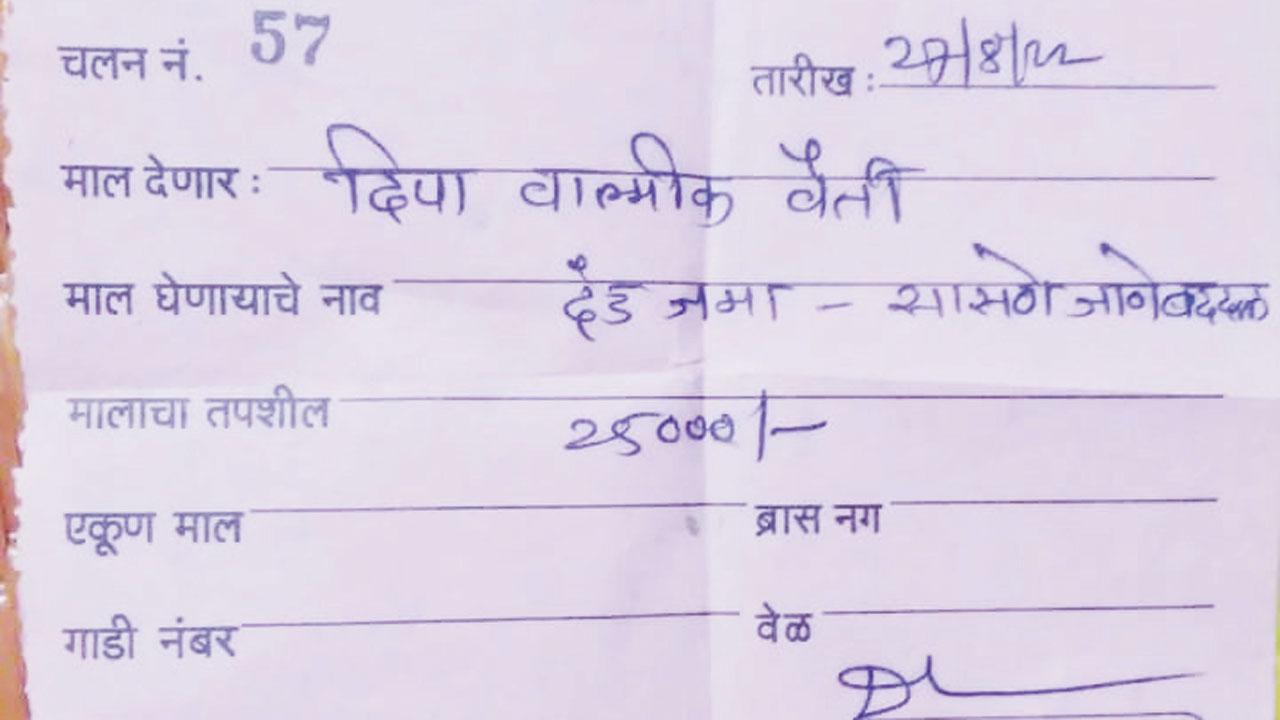 चलन नं. 57 तारीख : 27/8/22
माल देणार : दिपा वाल्मीक वैती
माल घेणायाचे नाव दंड जमा - सासणे जागेबद्दल
मालाचा तपशील 25000/-
एकूण माल ब्रास नग
गाडी नंबर वेळ